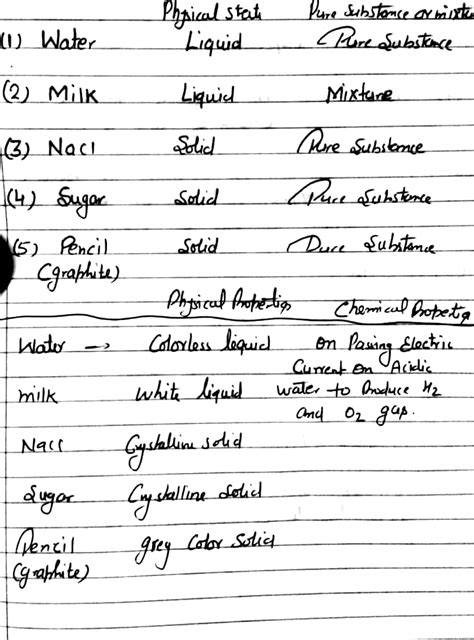 Physical state Pure Substance or mixture
(1) Water Liquid Pure Substance
(2) Milk Liquid Mixture
(3) Nacl Solid Pure Substance
(4) Sugar Solid Pure Substance
(5) Pencil Solid Pure Substance
(graphite)
Physical Properties Chemical Properties
Water → Colorless liquid on Passing Electric
Current on Acidic
milk white liquid water to Produce H2
and O2 gap.
Nacl Crystalline solid
Sugar Crystalline Solid
Pencil grey Color Solid
(graphite)